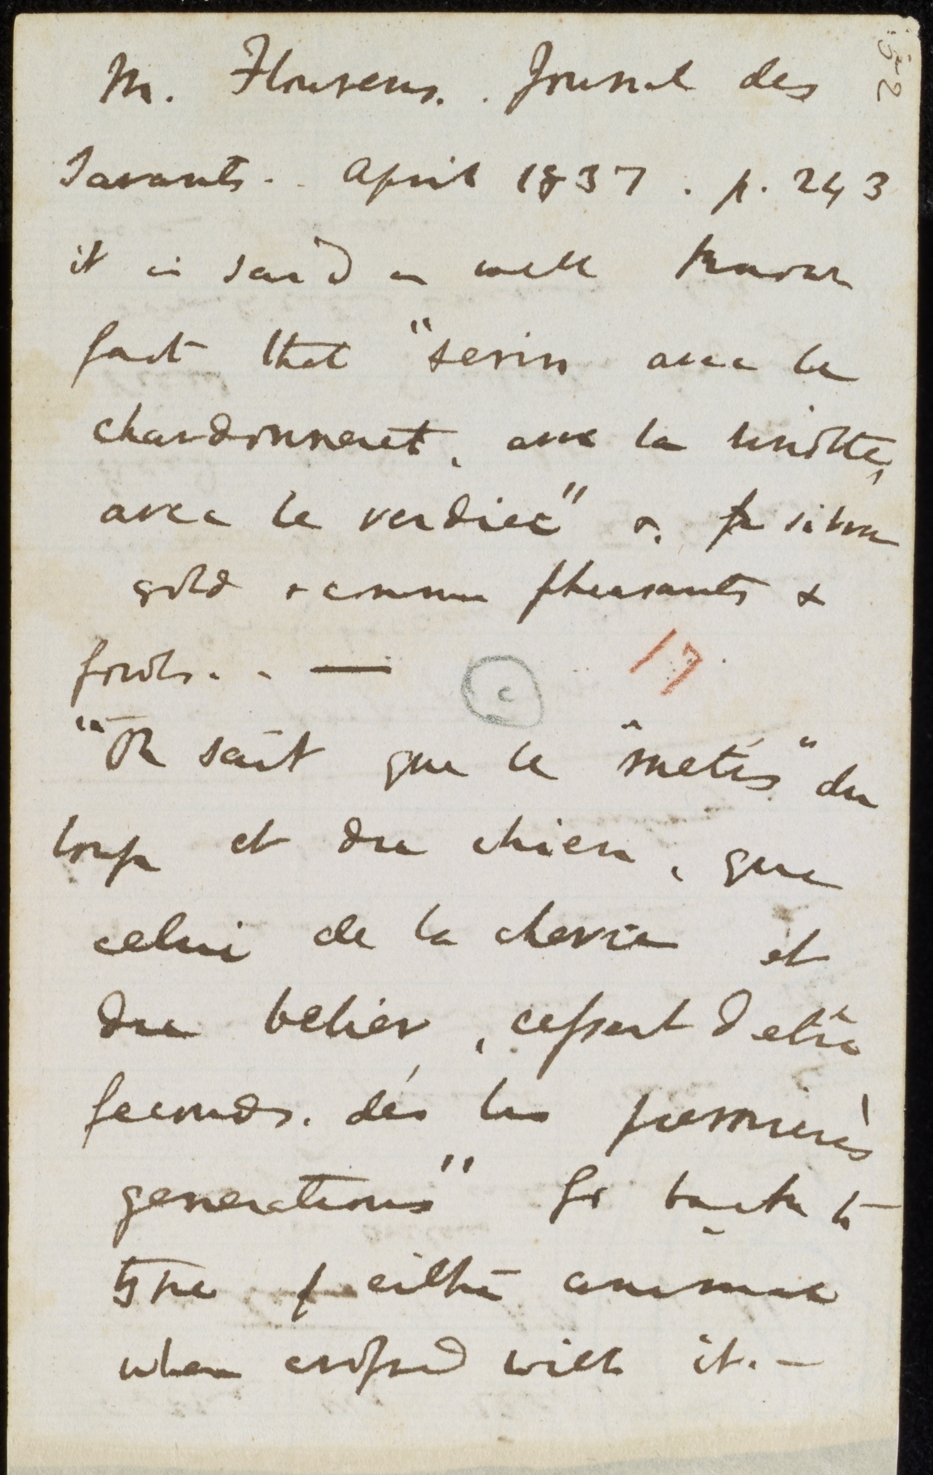 :52
M. Flourens. . Journal des
Savants. . April 1837 . p. 243
it is said in well known
fact that "serin avec le
chardonneret, avec la linotte,
avec le verdier" & silver
gold & common pheasants &
fowls. . —
c 17
"On sait que le "metis" du
loup et du chien, que
celui de la chevre et
du belier, cessent d'etre
feconds. dés les premierès
generations" Go back to
type of either animal
when crossed with it. —